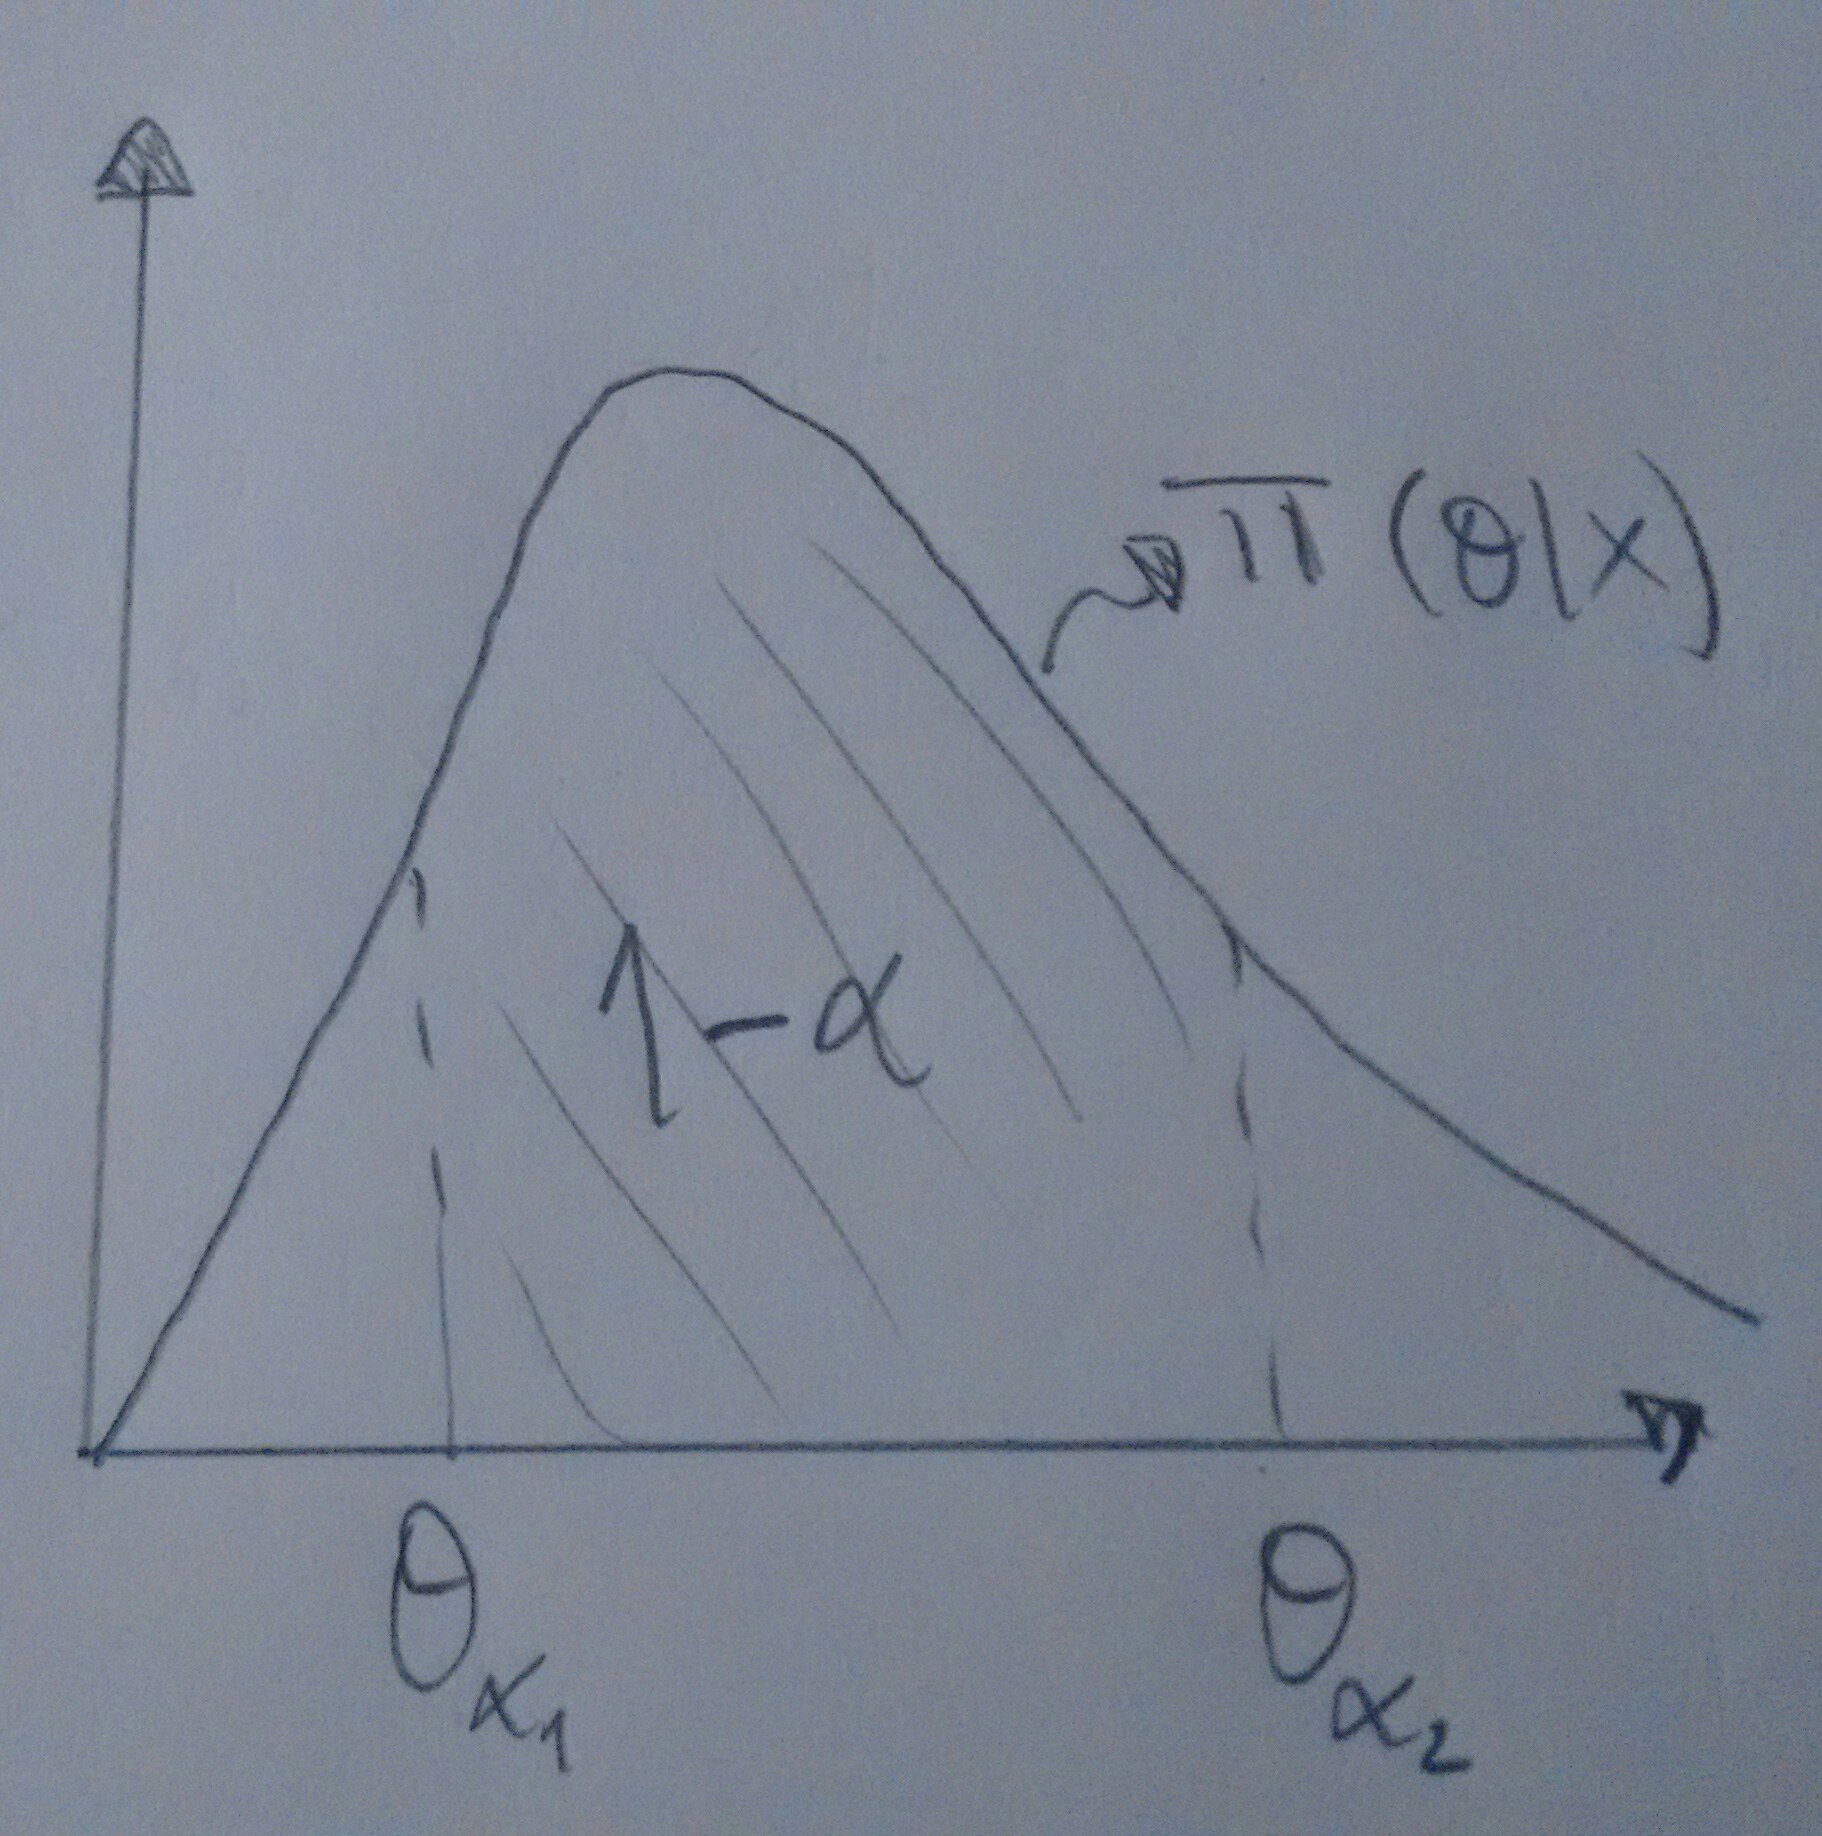 π(θ|x)
1-α
θα₁
θα₂